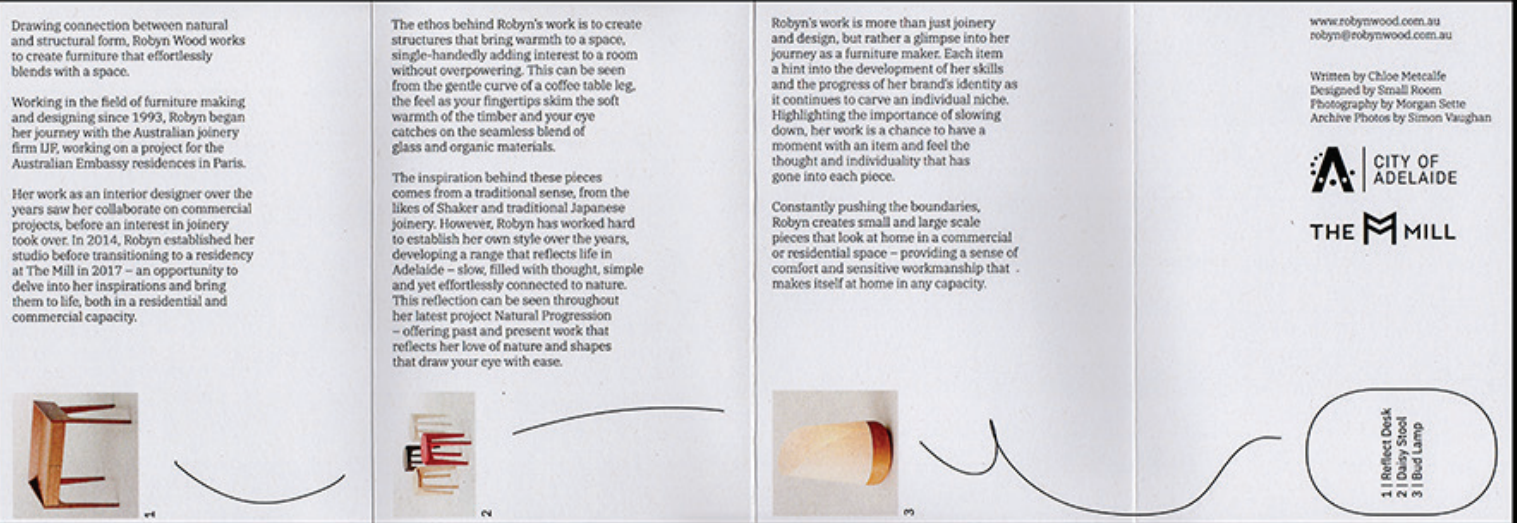 Drawing connection between natural
and structural form, Robyn Wood works
to create furniture that effortlessly
blends with a space.
Working in the field of furniture making
and designing since 1993, Robyn began
her journey with the Australian joinery
firm IJF, working on a project for the
Australian Embassy residences in Paris.
Her work as an interior designer over the
years saw her collaborate on commercial
projects, before an interest in joinery
took over. In 2014, Robyn established her
studio before transitioning to a residency
at The Mill in 2017 – an opportunity to
delve into her inspirations and bring
them to life, both in a residential and
commercial capacity.
1
The ethos behind Robyn's work is to create
structures that bring warmth to a space,
single-handedly adding interest to a room
without overpowering. This can be seen
from the gentle curve of a coffee table leg,
the feel as your fingertips skim the soft
warmth of the timber and your eye
catches on the seamless blend of
glass and organic materials.
The inspiration behind these pieces
comes from a traditional sense, from the
likes of Shaker and traditional Japanese
joinery. However, Robyn has worked hard
to establish her own style over the years,
developing a range that reflects life in
Adelaide – slow, filled with thought, simple
and yet effortlessly connected to nature.
This reflection can be seen throughout
her latest project Natural Progression
– offering past and present work that
reflects her love of nature and shapes
that draw your eye with ease.
2
Robyn's work is more than just joinery
and design, but rather a glimpse into her
journey as a furniture maker. Each item
a hint into the development of her skills
and the progress of her brand's identity as
it continues to carve an individual niche.
Highlighting the importance of slowing
down, her work is a chance to have a
moment with an item and feel the
thought and individuality that has
gone into each piece.
Constantly pushing the boundaries,
Robyn creates small and large scale
pieces that look at home in a commercial
or residential space – providing a sense of
comfort and sensitive workmanship that
makes itself at home in any capacity.
3
www.robynwood.com.au
robyn@robynwood.com.au
Written by Chloe Metcalfe
Designed by Small Room
Photography by Morgan Sette
Archive Photos by Simon Vaughan
CITY OF
ADELAIDE
THE M MILL
1 | Reflect Desk
2 | Daisy Stool
3 | Bud Lamp